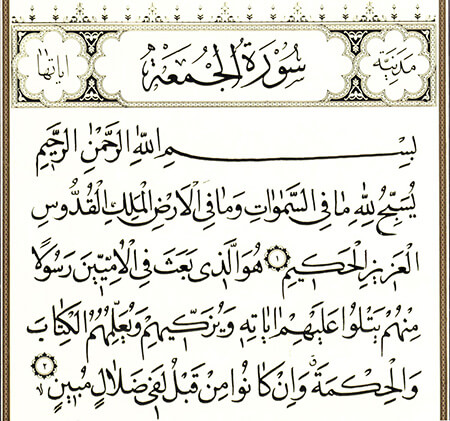 مدنية سُورَةُ الْجُمُعَةِ اياتها
بِسْمِ اللّٰهِ الرَّحْمٰنِ الرَّحِيمِ
يُسَبِّحُ لِلّٰهِ مَا فِى السَّمٰوَاتِ وَمَا فِى الْاَرْضِ الْمَلِكِ الْقُدُّوسِ
الْعَزِيزِ الْحَكِيمِ ١ هُوَ الَّذٖى بَعَثَ فِى الْاُمِّيّٖنَ رَسُولًا
مِنْهُمْ يَتْلُوا عَلَيْهِمْ اٰيَاتِهٖ وَيُزَكّٖيهِمْ وَيُعَلِّمُهُمُ الْكِتَابَ
وَالْحِكْمَةَۗ وَاِنْ كَانُوا مِنْ قَبْلُ لَفٖى ضَلَالٍ مُبٖينٍ ٢